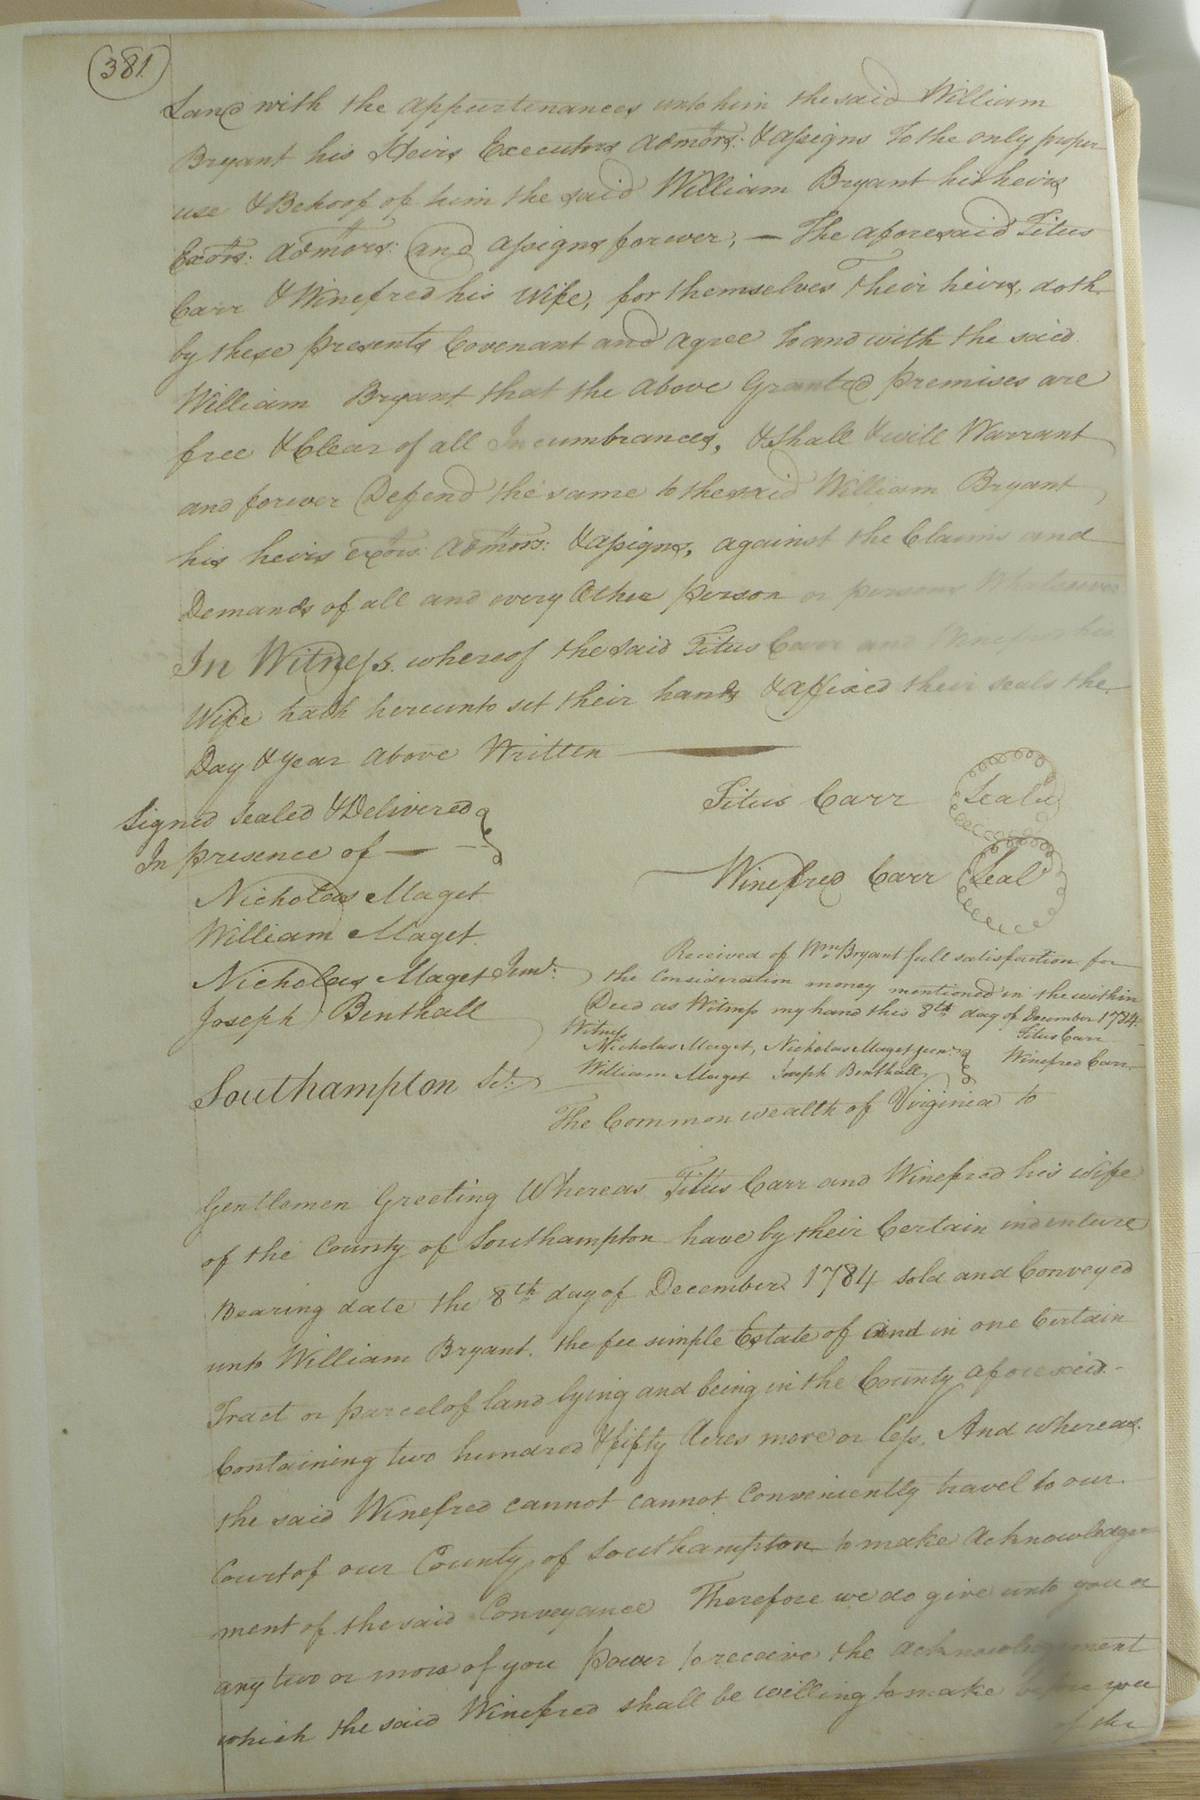 381
Land with the appurtenances unto him the said William
Bryant his Heirs Executors Admors: & assigns To the only proper
use & Behoof of him the said William Bryant his heirs
Exors: Admors: and assigns forever, — The aforesaid Titus
Carr & Winefred his Wife, for themselves Their heirs, doth
by these presents Covenant and agree to and with the said
William Bryant that the above Granted premises are
free & Clear of all Incumbrances, & shall & will Warrant
and forever Defend the same to the said William Bryant
his heirs exors: Admors: & assigns, against the Claims and
Demands of all and every Other person or persons Whatsoever
In Witness whereof the said Titus Carr and his
Wife hath hereunto set their hands & affixed their seals the
Day & Year above Written
Titus Carr Seal
Signed Sealed & Delivered
In presence of —
Winefred Carr Seal
Nicholas Maget
William Maget
Nicholas Maget Junr:
Joseph Benthall
Received of Wm Bryant full satisfaction for
the Consideration money mentioned in the within
Deed as Witness my hand this 8th day of December 1784
Witness Titus Carr
Nicholas Maget, Nicholas Maget junr: Winefred Carr
William Maget Joseph Benthall
Southampton Sct:
The Common wealth of Virginia to
Gentlemen Greeting Whereas Titus Carr and Winefred his wife
of the County of Southampton have by their Certain indenture
Bearing date the 8th day of December 1784 sold and Conveyed
unto William Bryant. the fee simple Estate of and in one Certain
Tract or parcel of land lying and being in the County aforesaid
Containing two hundred & fifty Acres more or less. And whereas
the said Winefred cannot cannot Conveniently travel to our
Court of our County of Southampton to make Acknowledge
ment of the said Conveyance Therefore we do give unto you or
any two or more of you power to receive the acknowledgement
which the said Winefred shall be willing to make before you
of the